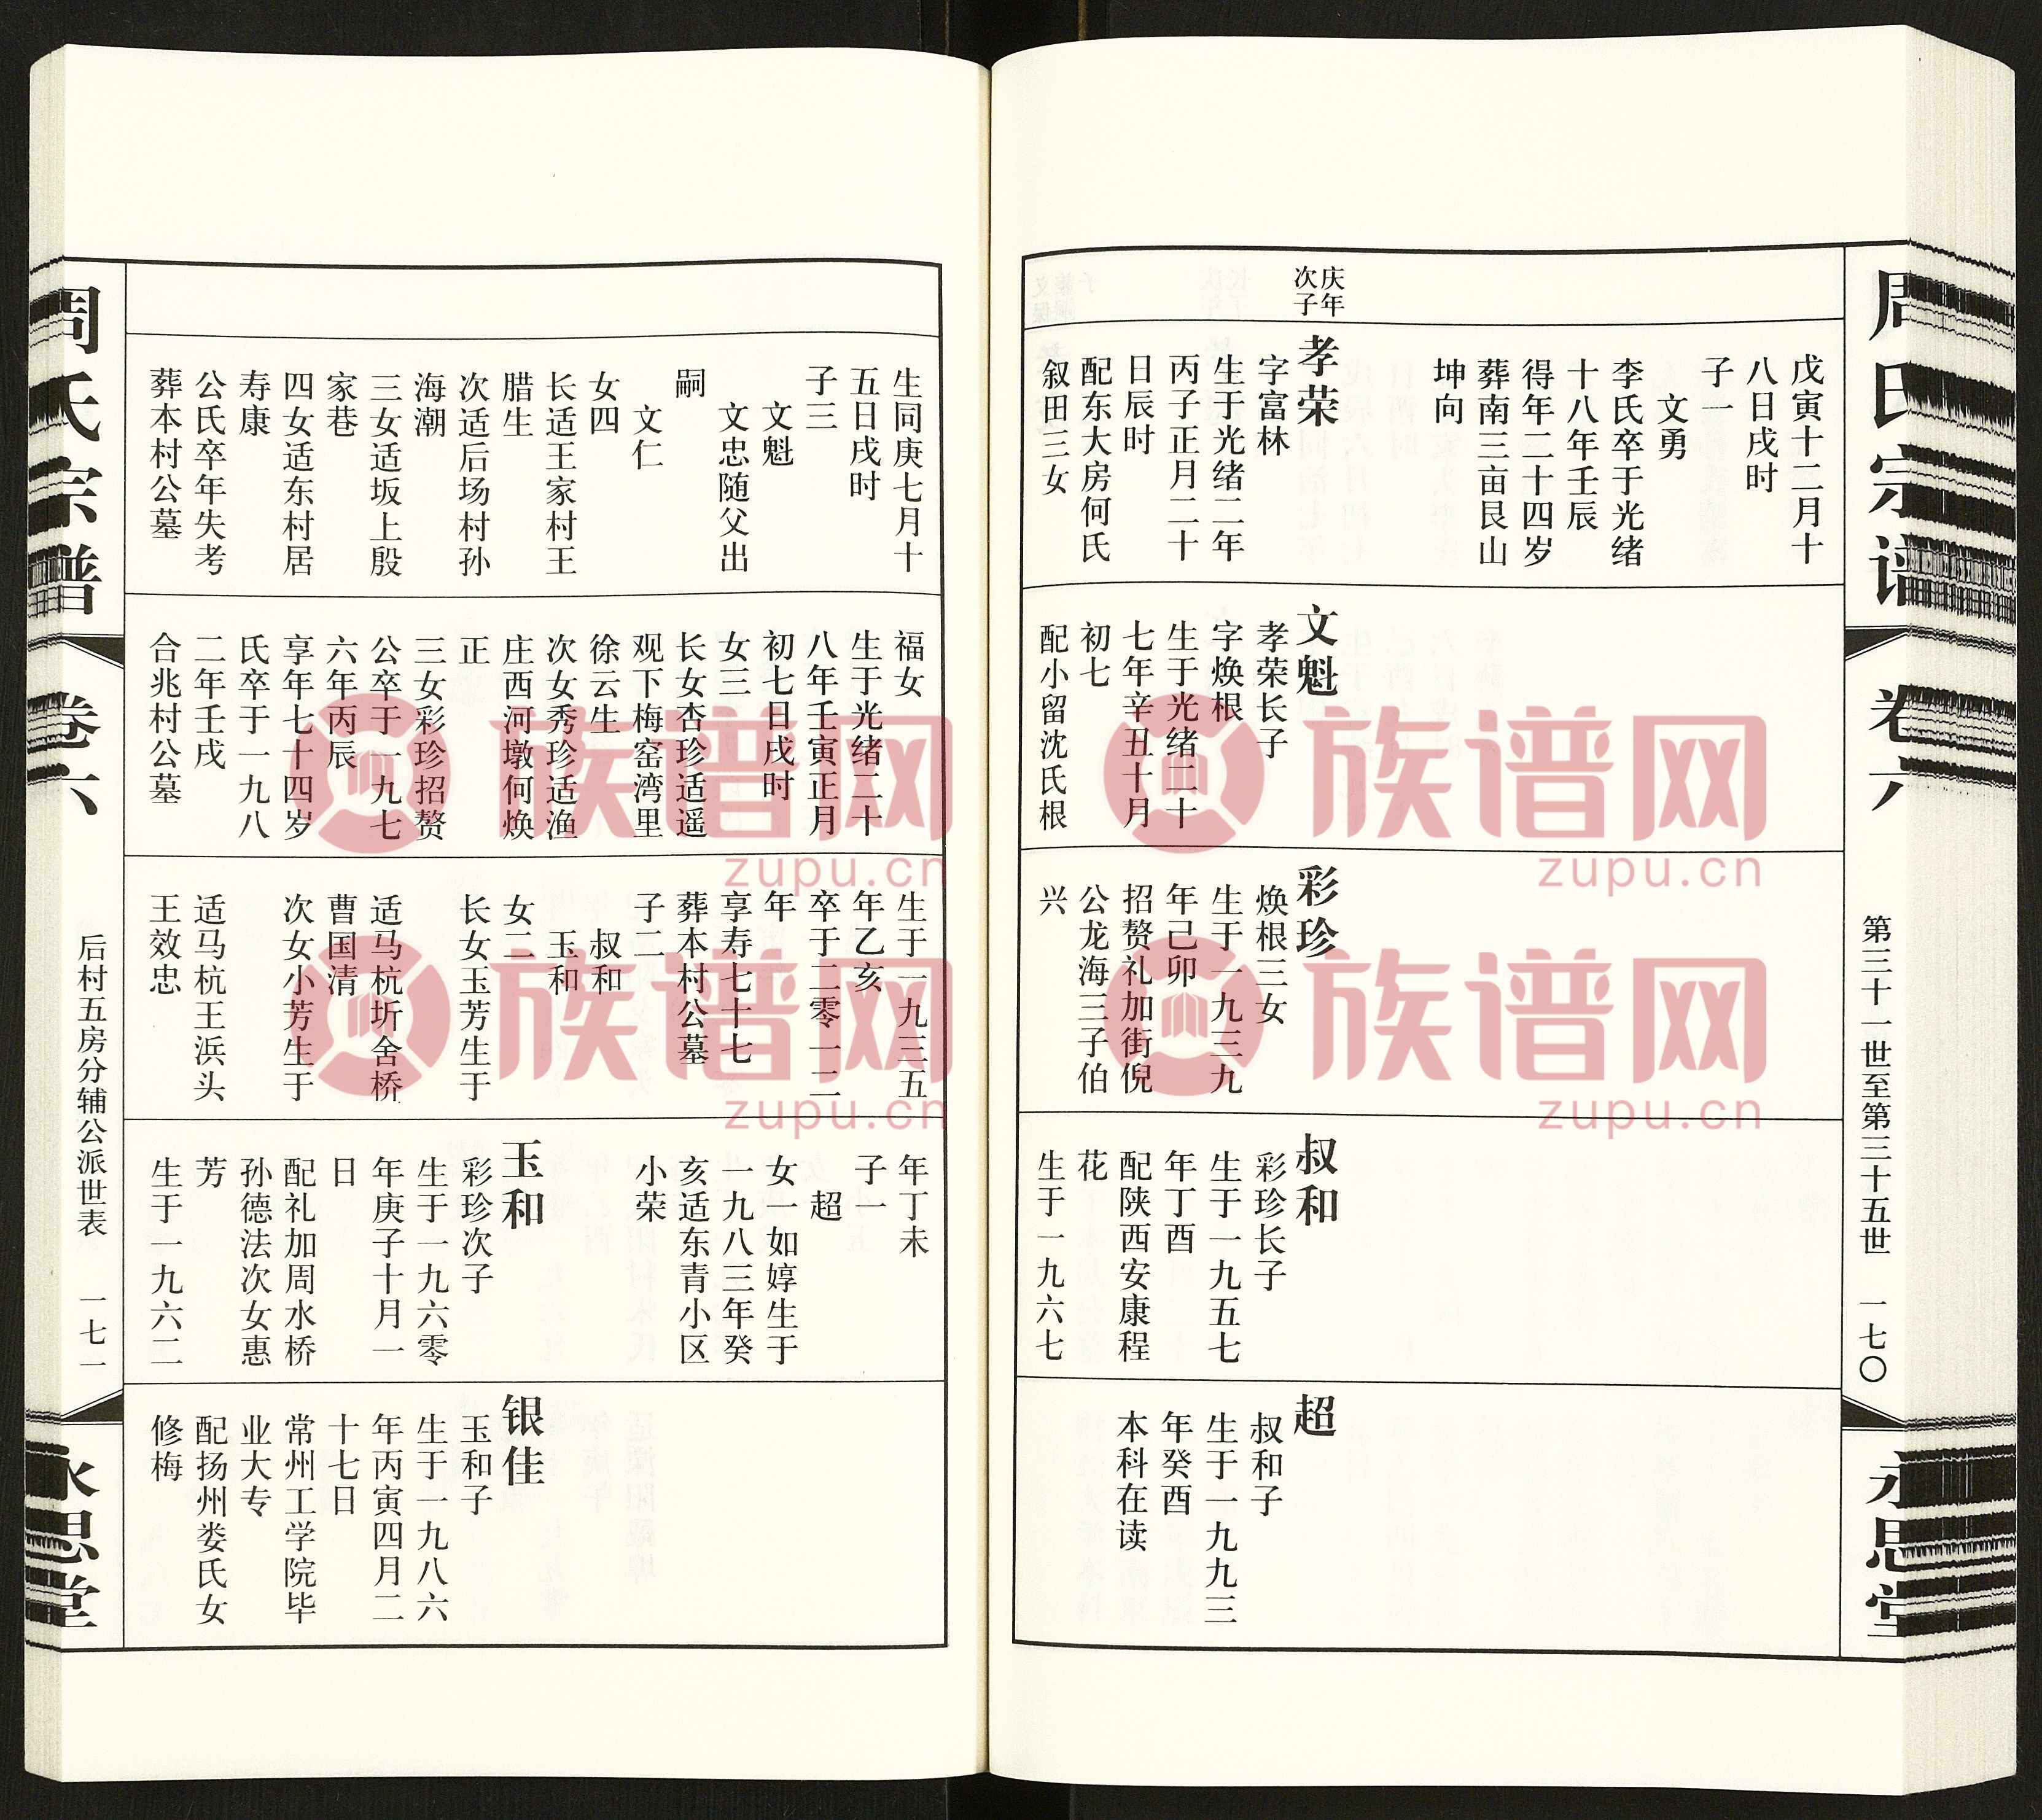 周氏宗谱
卷六
第三十一世至第三十五世
一七〇
永思堂
戊寅十二月十
八日戌时
子一
文勇
李氏卒于光绪
十八年壬辰
得年二十四岁
葬南三亩艮山
坤向
庆年
次子
孝荣
字富林
生于光绪二年
丙子正月二十
日辰时
配东大房何氏
叙田三女
文魁
孝荣长子
字焕根
生于光绪二十
七年辛丑十月
初七
配小留沈氏根
彩珍
焕根三女
生于一九三九
年己卯
招赘礼加街倪
公龙海三子伯
兴
叔和
彩珍长子
生于一九五七
年丁酉
配陕西安康程
花
生于一九六七
超
叔和子
生于一九九三
年癸酉
本科在读
生同庚七月十
五日戌时
子三
文魁
文忠随父出
嗣
文仁
女四
长适王家村王
腊生
次适后场村孙
海潮
三女适坂上殷
家巷
四女适东村居
寿康
公氏卒年失考
葬本村公墓
福女
生于光绪二十
八年壬寅正月
初七日戌时
女三
长女杏珍适遥
观下梅窑湾里
徐云生
次女秀珍适渔
庄西河墩何焕
正
三女彩珍招赘
公卒于一九七
六年丙辰
享年七十四岁
氏卒于一九八
二年壬戌
合兆村公墓
生于一九三五
年乙亥
卒于二零一二
年
享寿七十七
葬本村公墓
子二
叔和
玉和
女二
长女玉芳生于
适马杭圻舍桥
曹国清
次女小芳生于
适马杭王浜头
王效忠
年丁未
子一
超
女一如婷生于
一九八三年癸
亥适东青小区
小荣
玉和
彩珍次子
生于一九六零
年庚子十月一
日
配礼加周水桥
孙德法次女惠
芳
生于一九六二
银佳
玉和子
生于一九八六
年丙寅四月二
十七日
常州工学院毕
业大专
配扬州娄氏女
修梅
周氏宗谱
卷六
后村五房分辅公派世表
一七一
永思堂
族谱网
zupu.cn
族谱网
zupu.cn
族谱网
zupu.cn
族谱网
zupu.cn